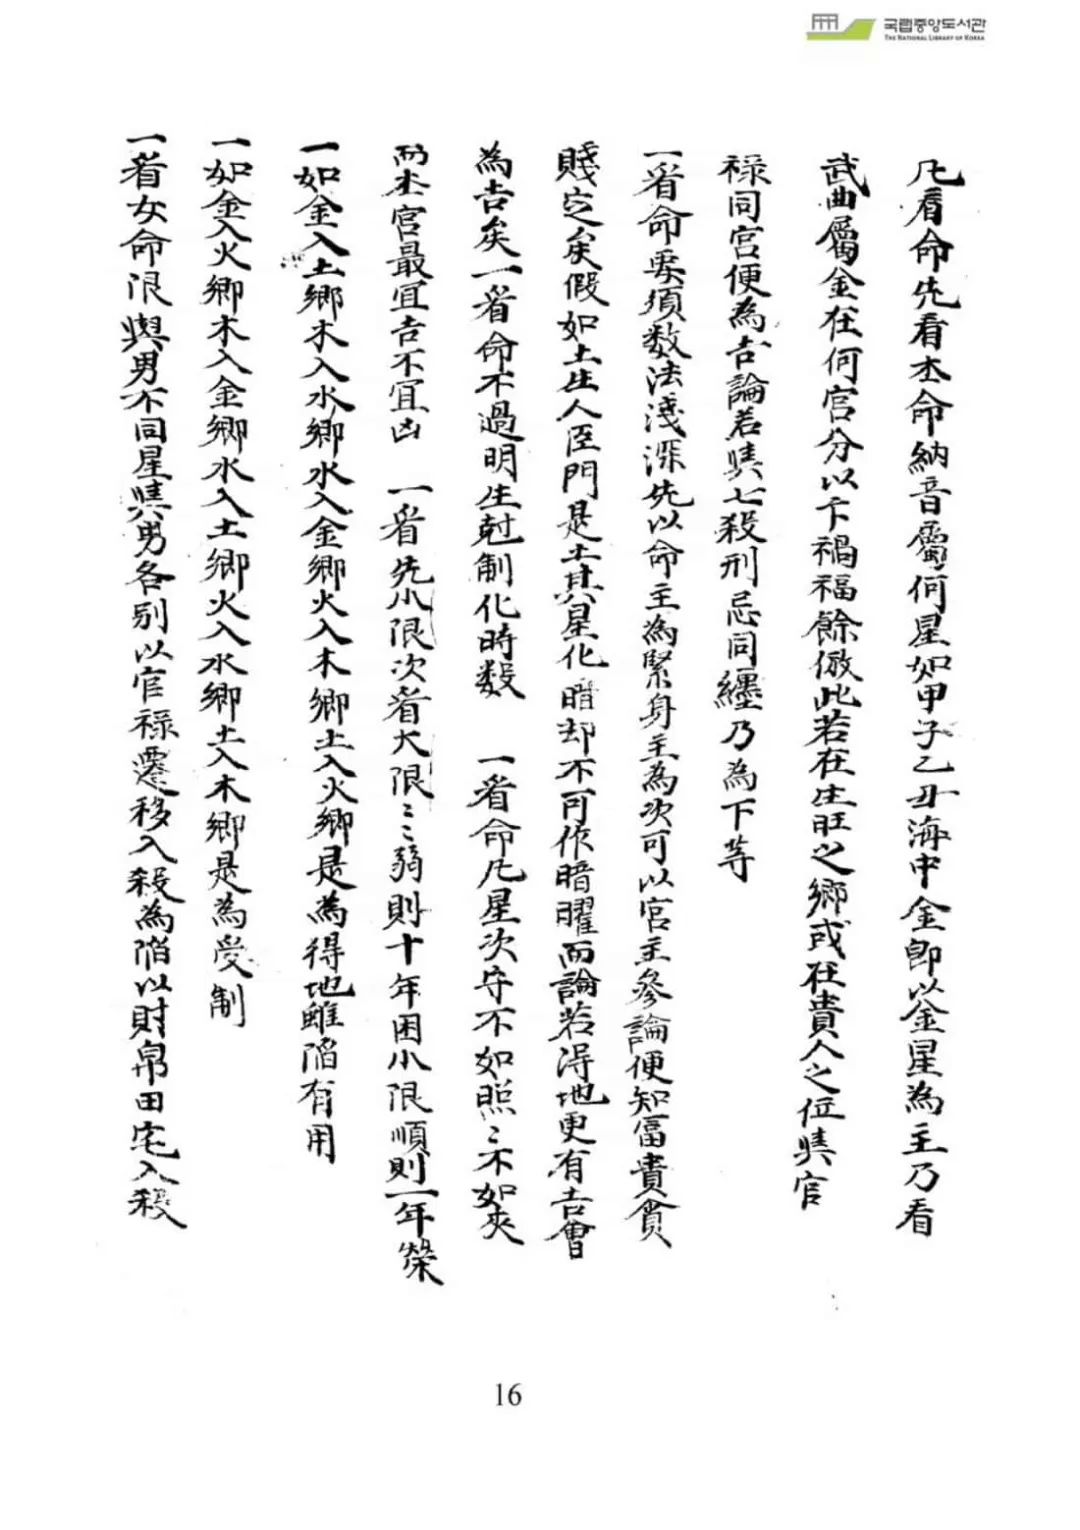 국립중앙도서관
THE NATIONAL LIBRARY OF KOREA
凡看命先看本命納音屬何星如甲子乙丑海中金卽以金星為主乃看
武曲屬金在何宮分以卞禍福餘倣此若在生旺之鄉或在貴人之位與官
祿同宮便為吉論若與七殺刑忌同纏乃為下等
一看命要須数法淺深先以命主為緊身主為次可以官主參論便知富貴貧
賤定矣假如土生人臣門是土其星化暗却不可作暗曜而論若得地更有吉曾
為吉矣一看命不過明生尅制化時数　一看命凡星次守不如照〻不如夾
而本宮最宜吉不宜凶　一看先小限次看大限〻弱則十年困小限順則一年榮
一如金入土鄉木入水鄉水入金鄉火入木鄉土入火鄉是為得地雖陷有用
一如金入火鄉木入金鄉水入土鄉火入水鄉土入木鄉是為受制
一看女命限與男不同星與男各別以官祿遷移入殺為陷以財帛田宅入殺
16